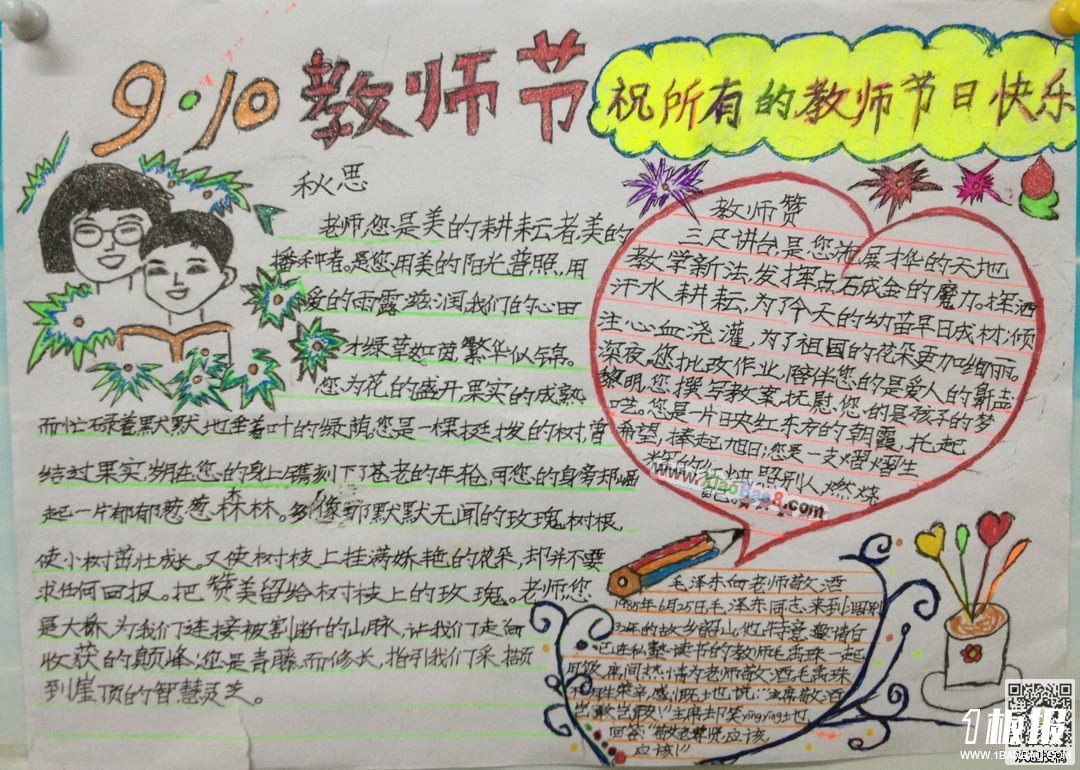 9·10 教师节
祝所有的教师节日快乐
秋思
老师,您是美的耕耘者,美的
播种者。是您用美的阳光普照,用
爱的雨露滋润,我们的心田
才绿草如茵,繁华似锦。
您为花的盛开,果实的成熟
而忙碌着默默地垂着叶的绿荫。您是一棵挺拔的树,曾
结过果实,岁月在您的身上镌刻下了苍老的年轮,用您的身旁却崛
起一片郁郁葱葱森林。多像那默默无闻的玫瑰树根,
使小树茁壮成长。又使树枝上挂满娇艳的花朵,却并不要
求任何回报。把赞美留给树枝上的玫瑰。老师,您
是大桥,为我们连接被割断的山脉,让我们走向
收获的巅峰;您是青藤而修长,指引我们采撷
到崖顶的智慧灵芝。
教师赞
三尺讲台,是您施展才华的天地,
教学新法,发挥点石成金的魔力。挥洒
汗水耕耘,为了今天的幼苗早日成材;倾
注心血浇灌,为了祖国的花朵更加绚丽。
深夜,您批改作业,陪伴您的是爱人的鼾声,
黎明,您撰写教案,抚慰您的是孩子的梦
呓。您是一片映红东方的朝霞,托起
希望,捧起旭日;您是一支熠熠生
辉的红烛,照别人,燃烧
自己。
www.XiaoBao8.com
毛泽东向老师敬酒
年6月25日毛泽东同志来到
年的故乡韶山,他特意邀请自
己进私塾读书的教师毛禹珠一起
用饭,席间热情为老师敬酒,毛禹珠
荣幸,感慨地说:“主席敬酒
岂敢岂敢!”主席却笑yingying地
回答:“敬老尊贤,应该
应该!”
1板报
WWW.1BANBAO.COM
欢迎投稿